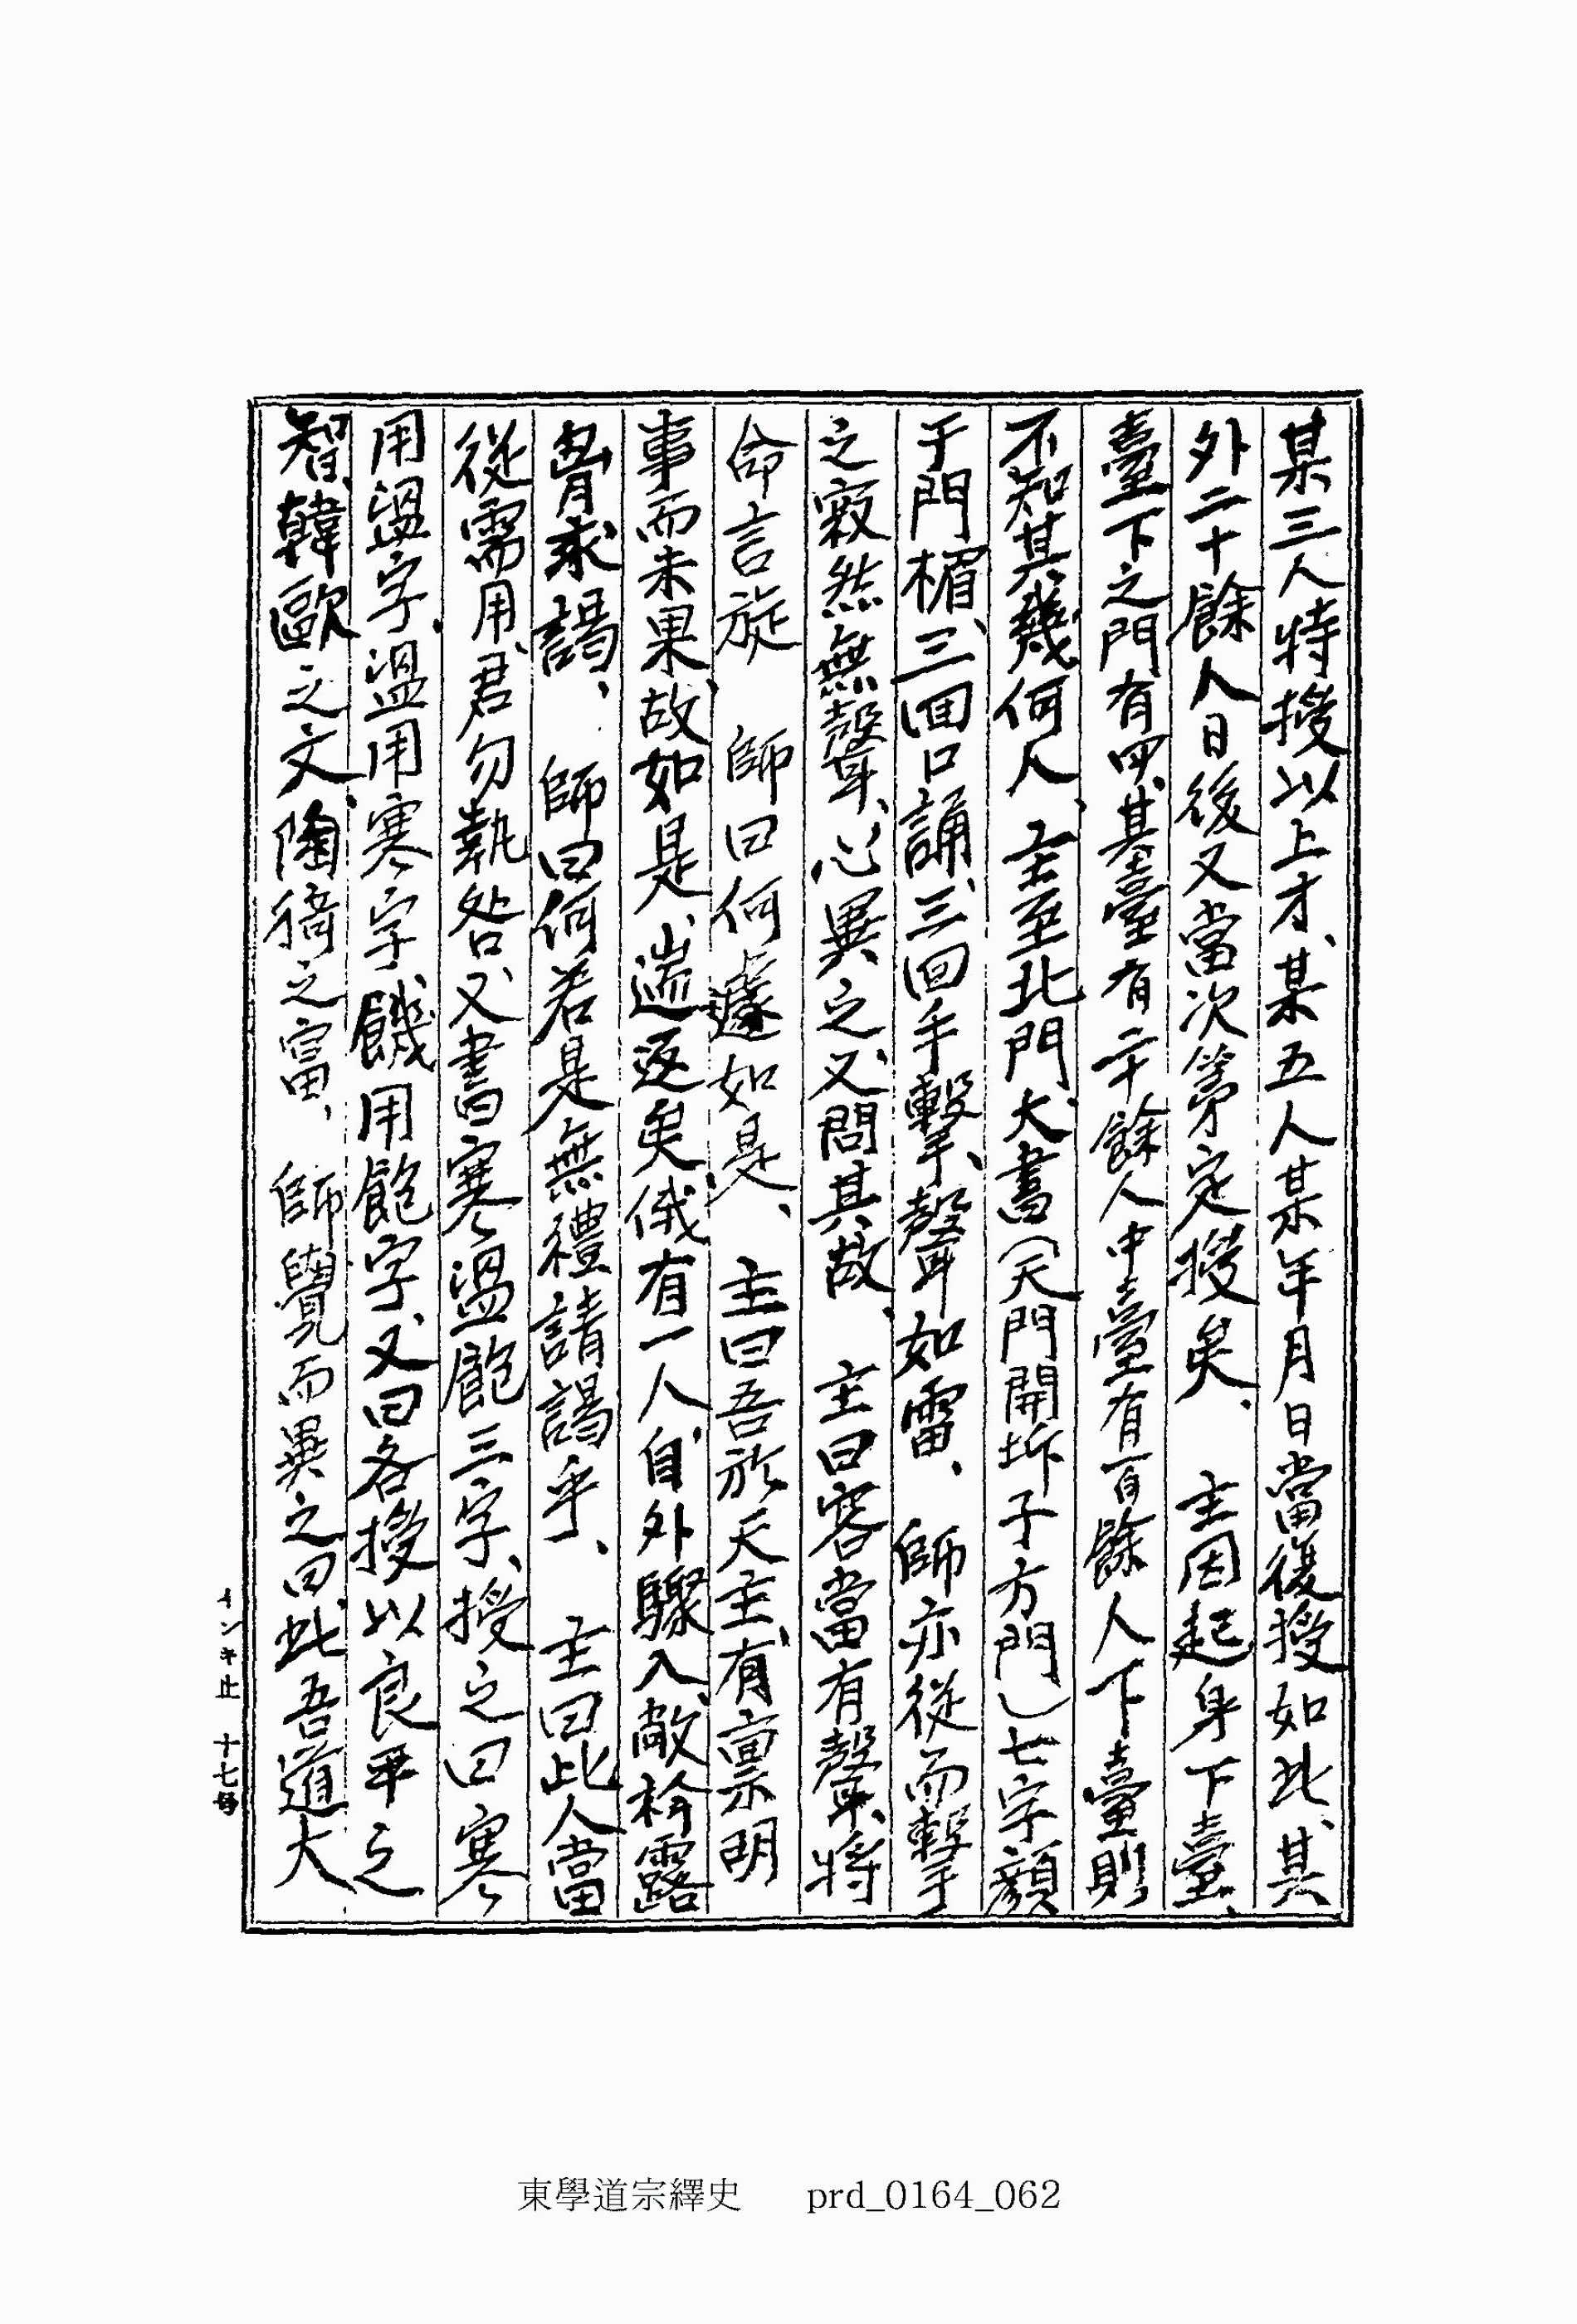 某三人特授以上才、某五人某年月日當後授如此、其
外二十餘人日後又當次第定授矣、　主因起身下臺、
臺下之門有四、其臺有二十餘人中臺有百餘人下臺則
不知其幾何人、主至北門、大書(天門開坼子方門)七字顏
于門楣、三回口誦、三回手擊、聲如雷、　師亦從而擊
之寂然無聲、心異之、又問其故、　主曰客當有聲、將
命言旋　師曰何遽如是、　主曰吾於天主、有稟明
事而未果、故如是、遄返矣、俄有一人、自外驟入、敞衿露
骨求謁、　師曰何若是無禮請謁乎、　主曰此人當
從需用、君勿執咎、又書寒溫飽三字、授之曰寒
用溫字、溫用寒字、饑用飽字、又曰各授以良平之
智、韓歐之文、陶猗之富、　師覺而異之曰、此吾道大
インキ止　十七號
東學道宗繹史　prd_0164_062